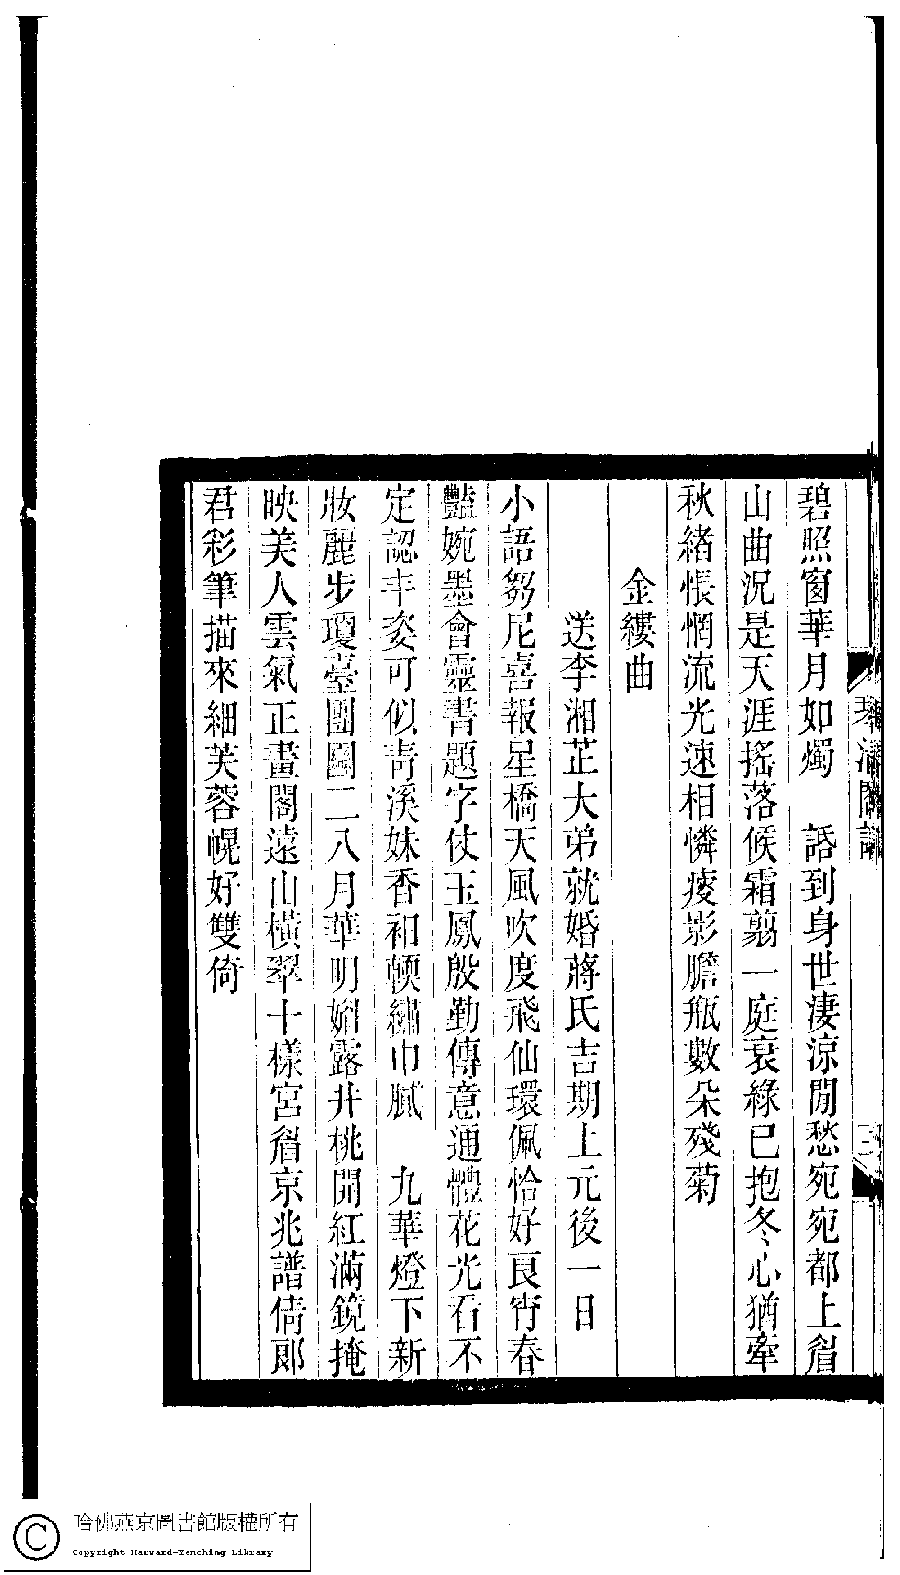 碧照窗華月如燭　話到身世淒涼閒愁宛宛都上眉
山曲況是天涯搖落候霜翦一庭衰綠已抱冬心猶牽
秋緒悵惘流光速相憐瘦影膽瓶數朵殘菊
金縷曲
送李湘芷大弟就婚蔣氏吉期上元後一日
小語芻尼喜報星橋天風吹度飛仙環佩恰好良宵春
豔婉墨會靈書題字仗玉鳳殷勤傳意通體花光石不
定認丰姿可似青溪妹香衵輭繡巾膩　九華燈下新
妝麗步瓊臺團圞二八月華明媚露井桃開紅滿鏡掩
映美人雲氣正畫閣遠山橫翠十樣宮眉京兆譜倩郎
君彩筆描來細芙蓉幌好雙倚
三
哈佛燕京圖書館版權所有
Copyright Harvard-Yenching Library